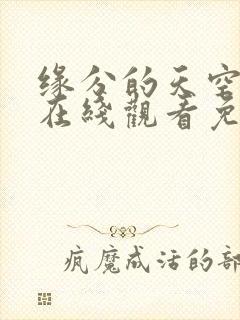 缘分的天空
在綫觀看免
疯魔成活的部